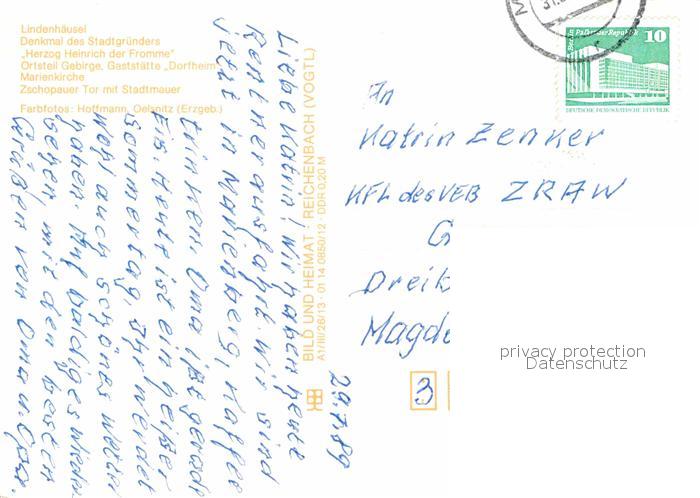 Lindenhäusel
Denkmal des Stadtgründers
„Herzog Heinrich der Fromme"
Ortsteil Gebirge, Gaststätte „Dorfheim
Marienkirche
Zschopauer Tor mit Stadtmauer
Farbfotos: Hoffmann, Oelsnitz (Erzgeb.)
Liebe Katrin! Wir haben heute
Rentnerausfahrt. Wir sind
jetzt in Marienberg, Kaffee
trinken. Oma ißt gerade
Eis. Heute ist ein heißer
Sommertag, Ihr werdet
wohl auch schönes Wetter
haben. Auf baldiges Wieder
sehen, mit den besten
Grüßen von Oma u. Opa.
29.7.89
BILD UND HEIMAT · REICHENBACH (VOGTL)
A1/III/26/13 · 01 14 0850/12 · DDR 0,20 M
10
Berlin, Palast der Republik
DEUTSCHE DEMOKRATISCHE REPUBLIK
An
Katrin Zenker
KFL des VEB ZRAW
G
Dreib
Magde
3
privacy protection
Datenschutz